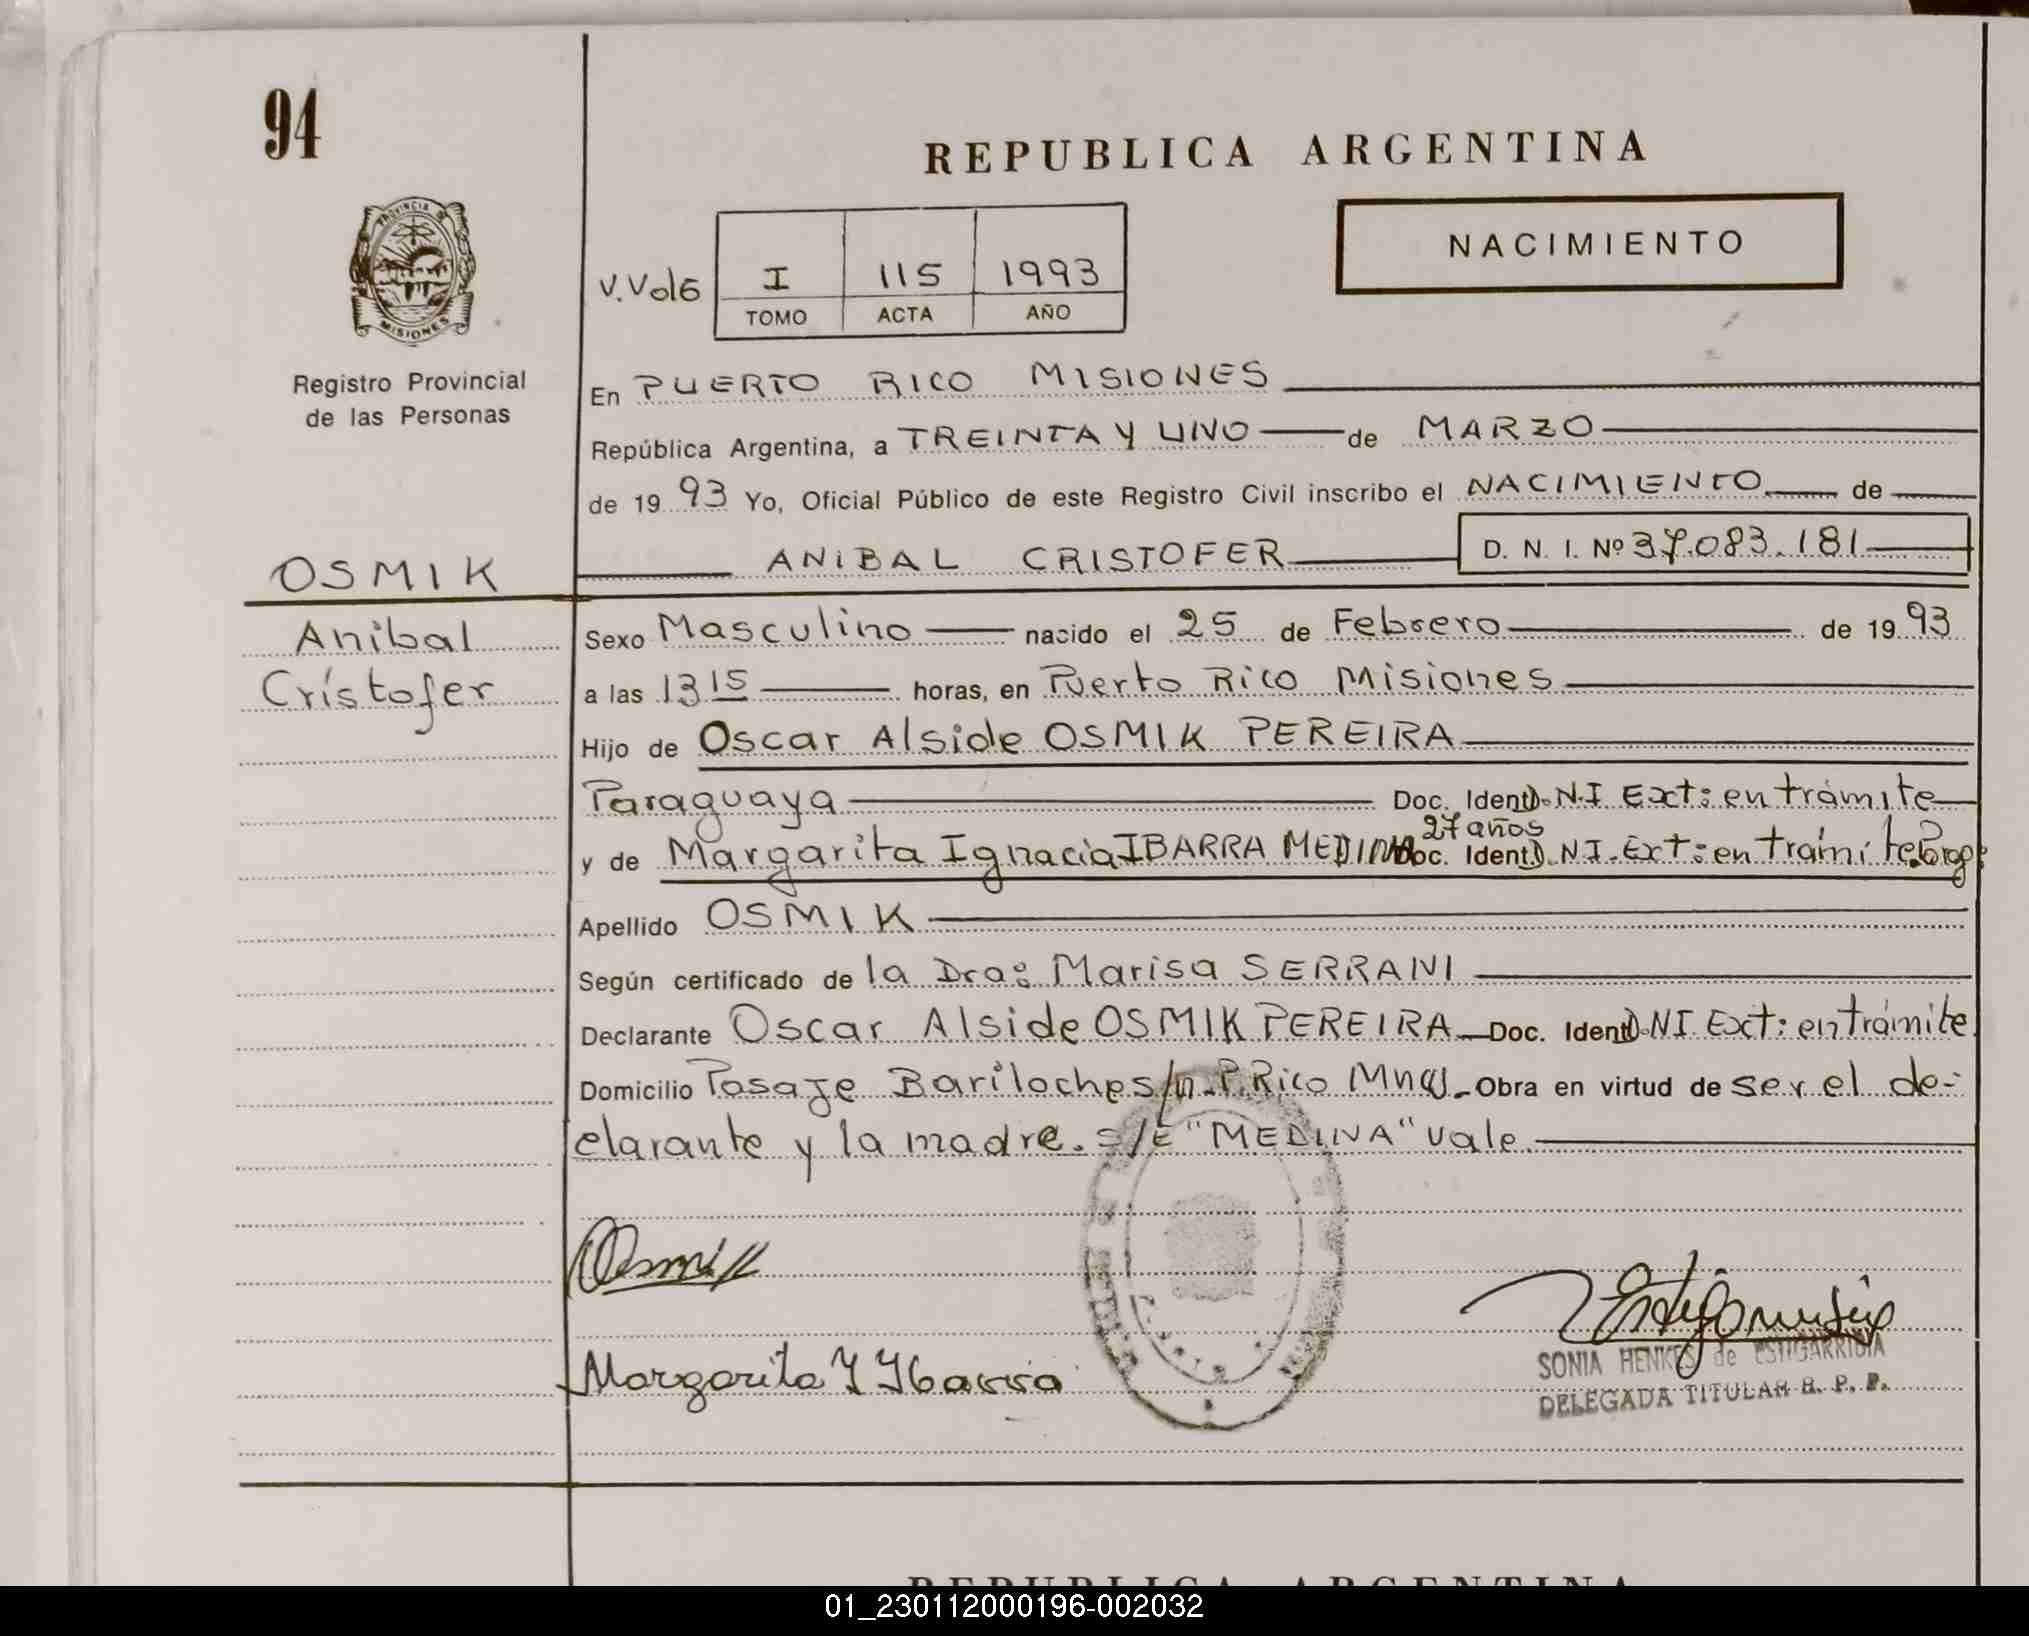 94
REPUBLICA ARGENTINA
NACIMIENTO
PROVINCIA DE
MISIONES
Registro Provincial
de las Personas
V.Vole I 115 1993
TOMO ACTA AÑO
En PUERTO RICO MISIONES
República Argentina, a TREINTA Y UNO de MARZO
de 1993 Yo, Oficial Público de este Registro Civil inscribo el NACIMIENTO de
ANIBAL CRISTOFER D. N. I. Nº 37.083.181
OSMIK
Anibal
Cristofer
Sexo Masculino nacido el 25 de Febrero de 1993
a las 13 15 horas, en Puerto Rico Misiones
Hijo de Oscar Alside OSMIK PEREIRA
Paraguaya Doc. Ident D.N.I Ext: en trámite
27 años
y de Margarita Ignacia IBARRA MEDINA Doc. Ident D.N.I. Ext: en trámite. Parag:
Apellido OSMIK
Según certificado de la Dra: Marisa SERRANI
Declarante Oscar Alside OSMIK PEREIRA Doc. Ident D.NI. Ext: en trámite
Domicilio Pasaje Bariloche s/n. P.Rico Mnes. Obra en virtud de ser el de-
clarante y la madre. S/E "MEDINA" vale.
Osmik
Margarita I Ibarra
SONIA HENKES de ESTIGARRIBIA
DELEGADA TITULAR R. P. P.
REPUBLICA ARGENTINA
01_230112000196-002032